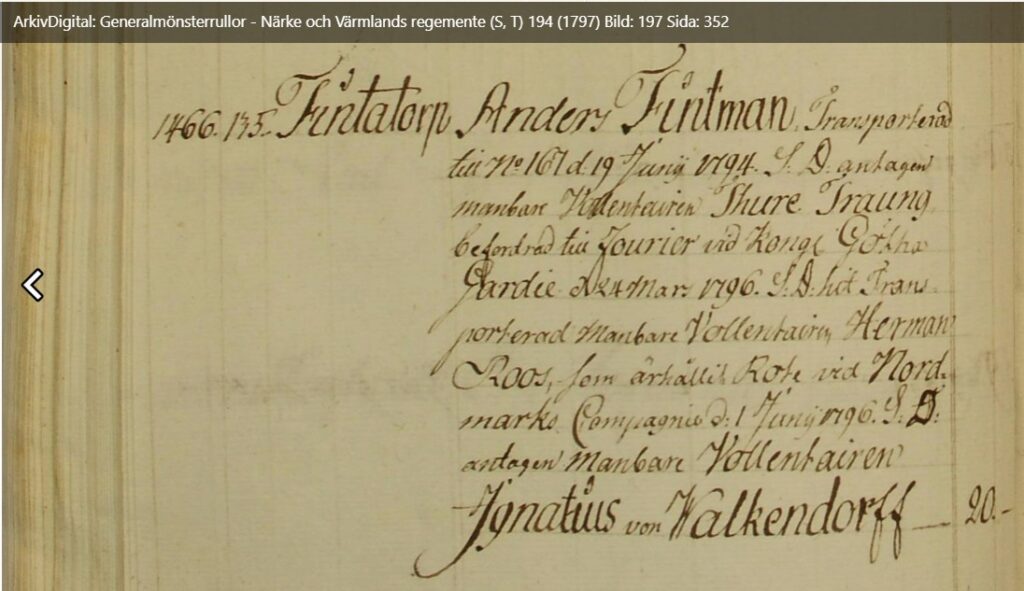 ArkivDigital: Generalmönsterrullor - Närke och Värmlands regemente (S, T) 194 (1797) Bild: 197 Sida: 352
1466. 135. Fintatorp Anders Fintman, Transporterad
till No 167 d 19 Junij 1794. S. D. antagen
manbare Volentairen Thure Traung,
befordrad till Fourier vid Kongl Götha
Gardie d 24 Mars 1796. S. D. hit Trans-
porterad Manbare Vollentairen Herman
Roos, som ärhållit Rote vid Nord-
marks Compagnie d: 1 Junij 1796. S. D.
antagen manbare Vollentairen
Ignatius von Walkendorff — 20.-